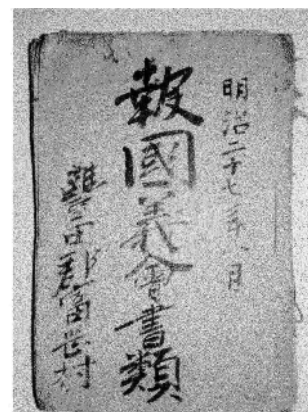 明治二十七年八月
報國義會書類
豐田郡富岳村